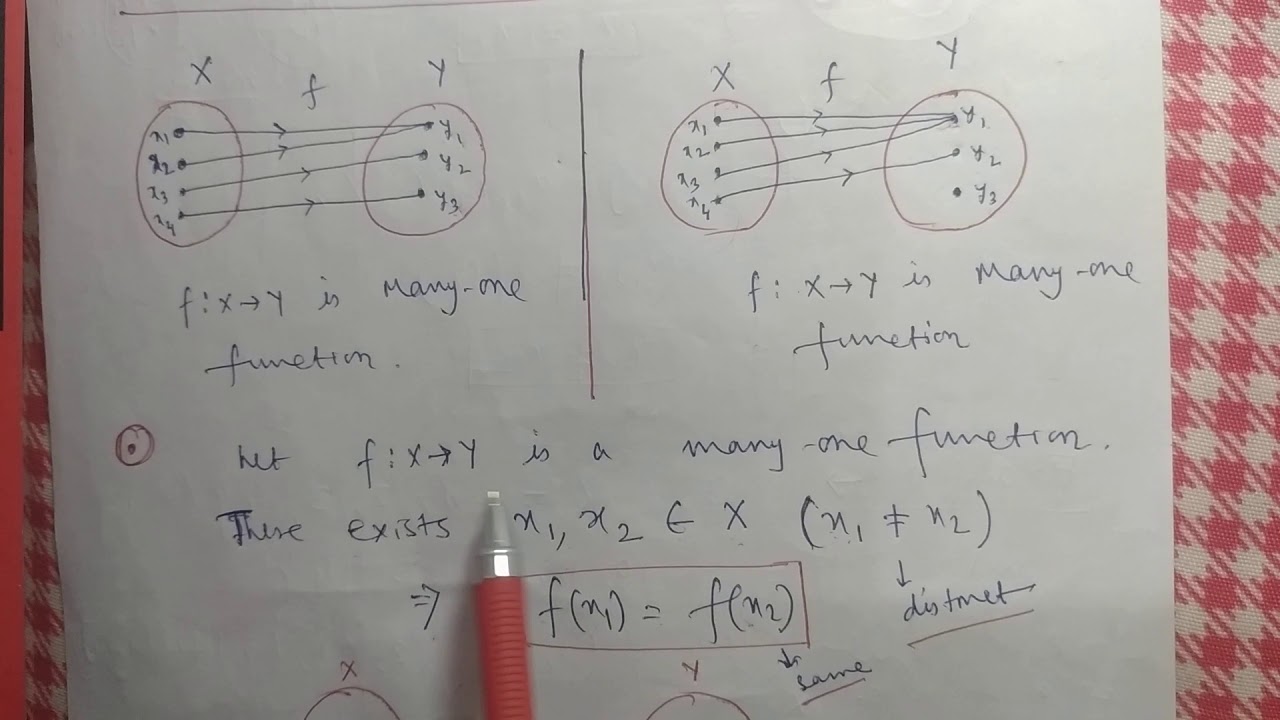 X f Y
x₁ y₁
x₂ y₂
x₃ y₃
x₄
f : X → Y is Many-one
function.
X f Y
x₁ y₁
x₂ y₂
x₃ y₃
x₄
f : X → Y is Many-one
function
Let f : X → Y is a many-one function.
There exists x₁, x₂ ∈ X (x₁ ≠ x₂)
↓ distinct
⇒ f(x₁) = f(x₂)
↓ same
X Y